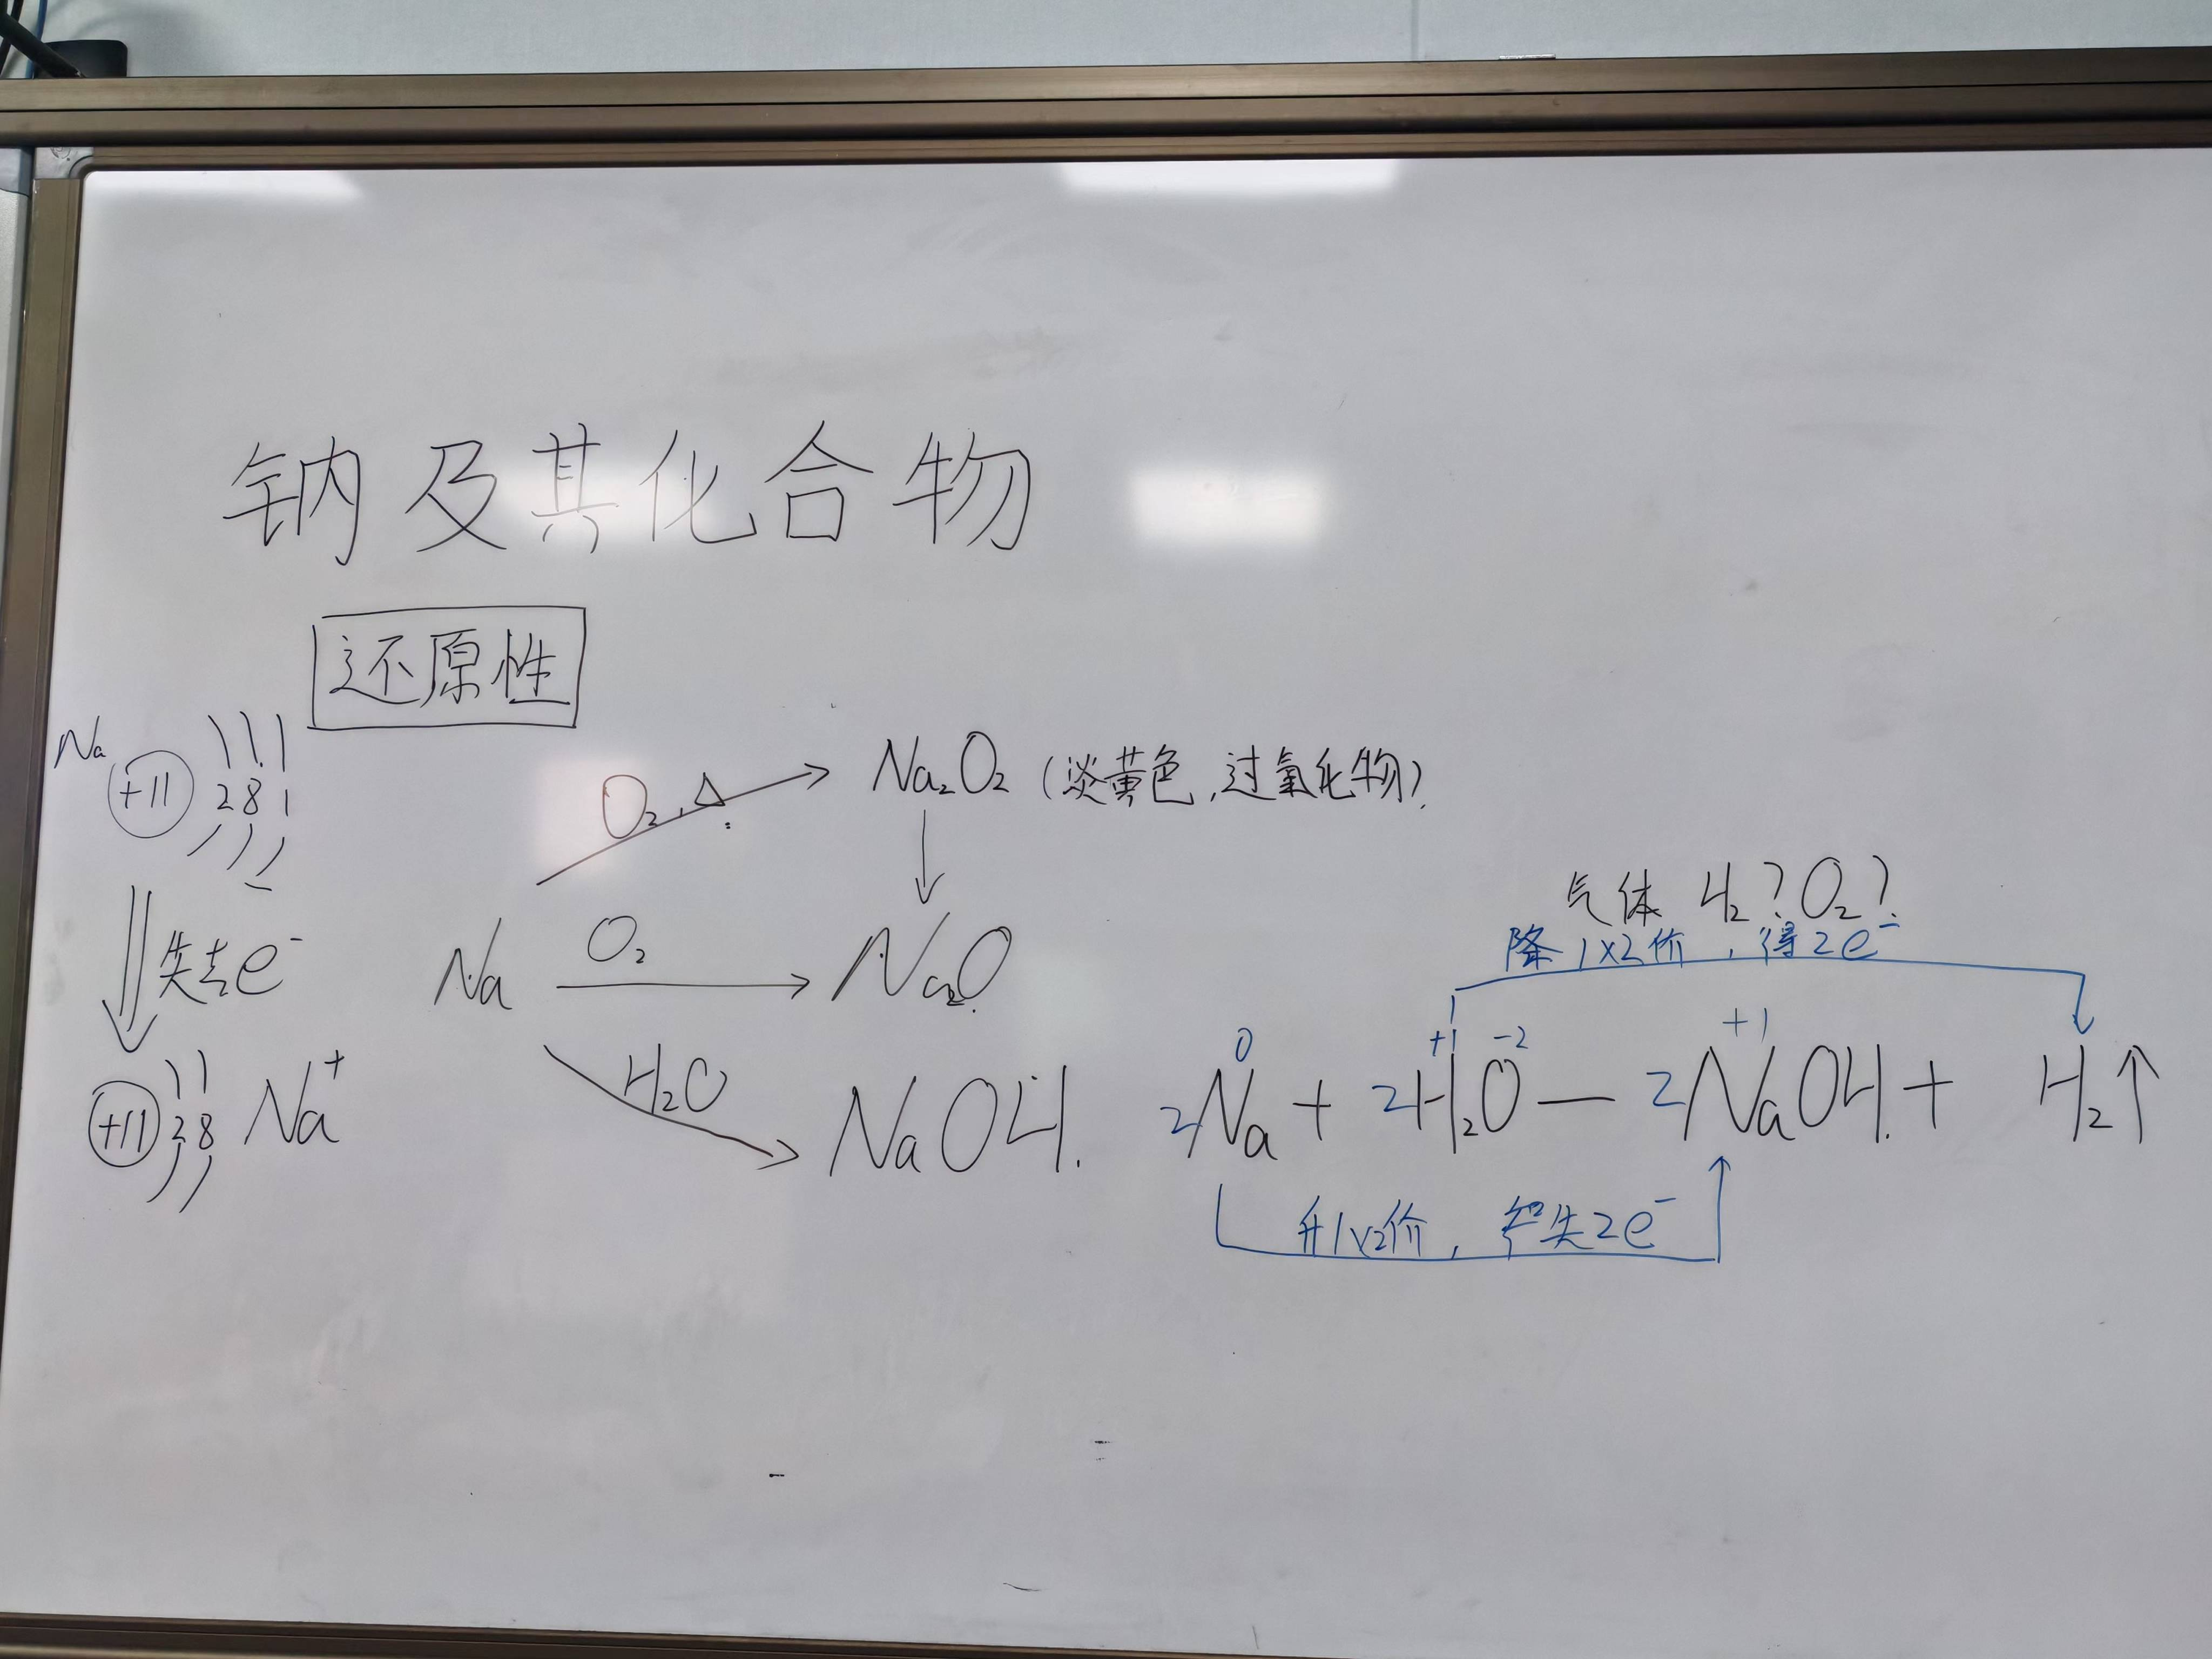 钠及其化合物
还原性
Na +11 2 8 1
失去e⁻
+11 2 8 Na⁺
O₂,△
Na₂O₂（淡黄色,过氧化物）
↓
Na O₂ → Na₂O
H₂O
NaOH.
气体 H₂?O₂?
降1×2价,得2e⁻
0 +1 -2 +1
2Na + 2H₂O — 2NaOH + H₂↑
升1×2价, 失2e⁻